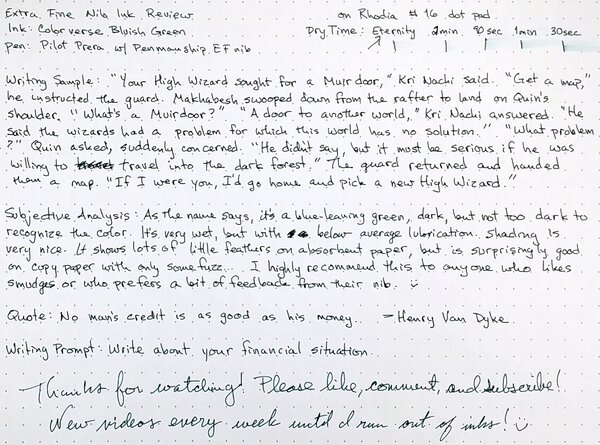 Extra Fine Nib Ink Review
on Rhodia #16 dot pad
Ink: Colorverse Bluish Green
Dry Time: Eternity 2min 90sec 1min 30sec
pen: Pilot Prera w/ Penmanship EF nib
Writing Sample: "Your High Wizard sought for a Muirdoor," Kri Nachi said. "Get a map,"
he instructed the guard. Makhabesh swooped down from the rafter to land on Quin's
shoulder. "What's a Muirdoor?" "A door to another world," Kri Nachi answered. "He
said the wizards had a problem for which this world has no solution." "What problem
?" Quin asked, suddenly concerned. "He didn't say, but it must be serious if he was
willing to travel into the dark forest." The guard returned and handed
them a map. "If I were you, I'd go home and pick a new High Wizard."
Subjective Analysis: As the name says, it's a blue-leaning green, dark, but not too dark to
recognize the color. It's very wet, but with below average lubrication. Shading is
very nice. It shows lots of little feathers on absorbent paper, but is surprisingly good
on copy paper with only some fuzz... I highly recommend this to anyone who likes
smudges or who prefers a bit of feedback from their nib. :)
Quote: No man's credit is as good as his money. - Henry Van Dyke.
Writing Prompt: Write about your financial situation.
Thanks for watching! Please like, comment, and subscribe!
New videos every week until I run out of inks! :)